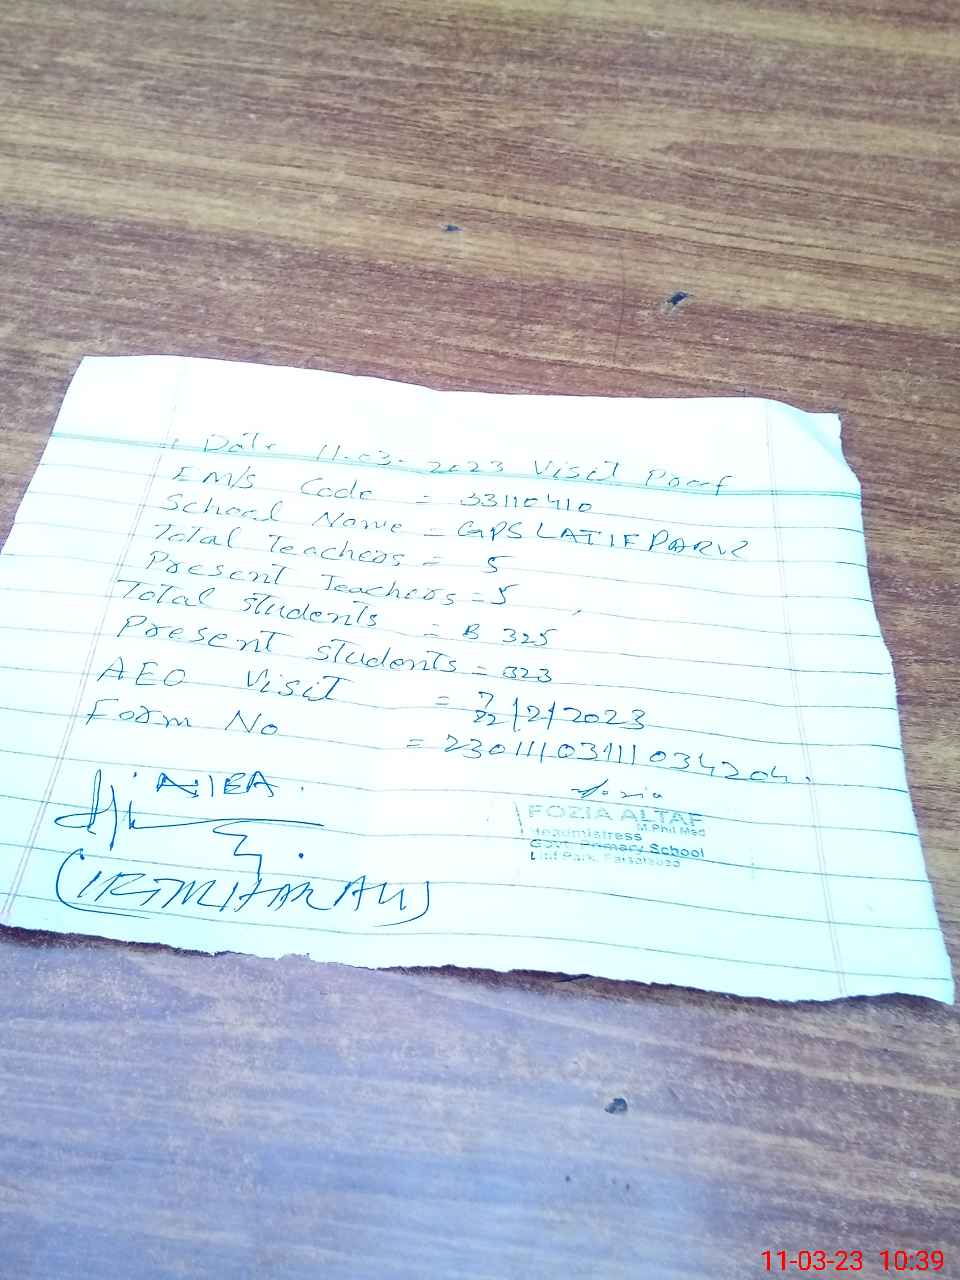 Date 11.03.2023 Visit Proof
EMIS Code = 33110410
School Name = GPS LATIF PARK
Total Teachers = 5
Present Teachers = 5
Total students = B 325
Present students = 323
AEO Visit = 22/2/2023
Form No = 23011103111034204.
Fozia
FOZIA ALTAF
M.Phil Med
Headmistress
Govt. Primary School
Latif Park, Faisalabad
11-03-23 10:39